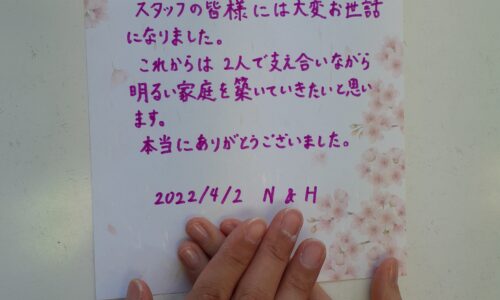 スタッフの皆様には大変お世話
になりました。
これからは 2人で支え合いながら
明るい家庭を築いていきたいと思い
ます。
本当にありがとうございました。
2022/4/2 N & H